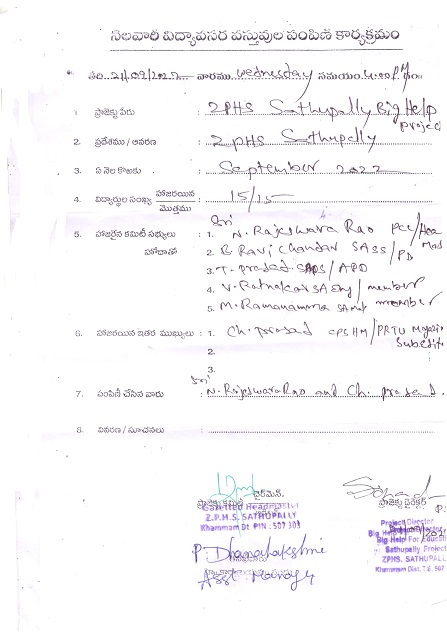 నెలవారీ విద్యావసర వస్తువుల పంపిణీ కార్యక్రమం
తేది. 21/09/2022 వారము wednesday సమయం 4.00 PM గం॥
1. ప్రాజెక్టు పేరు : ZPHS Sathupally Big Help project
2. ప్రదేశము / ఆవరణ : ZPHS Sathupally
3. ఏ నెల కొఱకు : September 2022
4. విద్యార్థుల సంఖ్య హాజరయిన / మొత్తము : 15/15
5. హాజరైన కమిటీ సభ్యులు : 1. Sri N. Rajeshwara Rao
హోదాతో 2. B. Ravi Chandar SA SS / PD
3. T. prasad / APD
4. V. Ratnakar SA / member
5. M. Ramanamma SA member
6. హాజరయిన ఇతర ముఖ్యులు : 1. Ch. prasad PRTU
2.
3.
7. పంపిణీ చేసిన వారు : Sri N. Rajeshwara Rao and Ch. prasad.
8. వివరణ / సూచనలు :
ఛైర్మెన్,
ప్రాజెక్టు కమిటీ
ప్రాజెక్టు డైరెక్టర్
Gazetted Headmaster
Z.P.H.S. SATHUPALLY
Khammam Dt PIN : 507 303
Project Director
Big Help For Education
Sathupally Project
ZPHS. SATHUPALLY
Khammam Dist. T.S. 507
P Dhanalakshmi